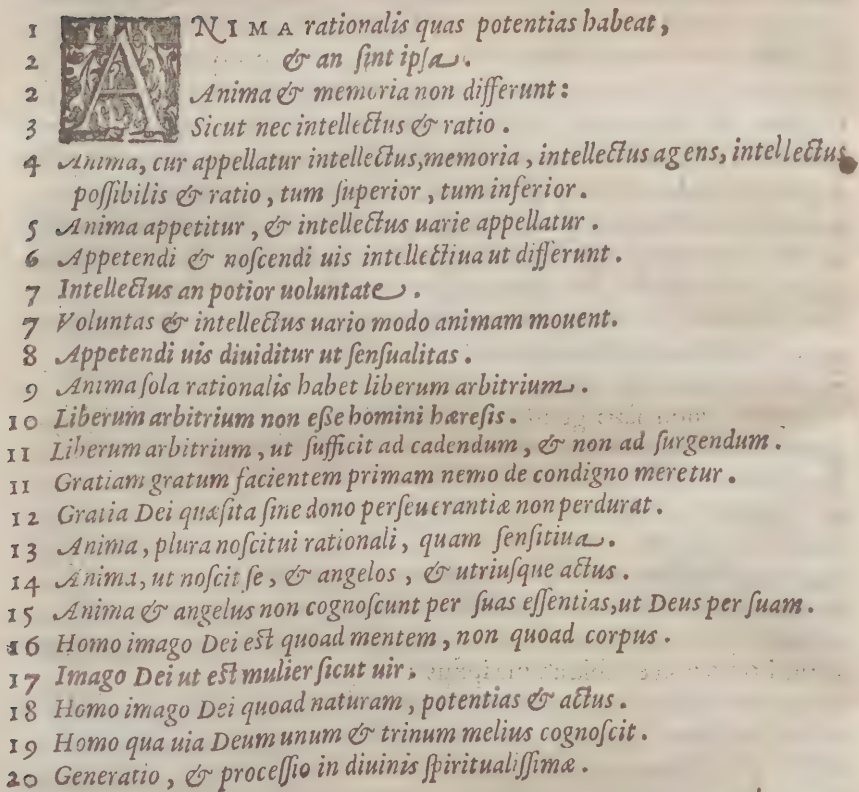 1 ANIMA rationalis quas potentias habeat,
2 & an ſint ipſa.
2 Anima & memoria non differunt:
3 Sicut nec intellectus & ratio.
4 Anima, cur appellatur intellectus, memoria, intellectus agens, intellectus
poſſibilis & ratio, tum ſuperior, tum inferior.
5 Anima appetitur, & intellectus uarie appellatur.
6 Appetendi & noſcendi uis intellectiua ut differunt.
7 Intellectus an potior uoluntate.
7 Voluntas & intellectus uario modo animam mouent.
8 Appetendi uis diuiditur ut ſenſualitas.
9 Anima ſola rationalis habet liberum arbitrium.
10 Liberum arbitrium non eſſe homini hæreſis.
11 Liberum arbitrium, ut ſufficit ad cadendum, & non ad ſurgendum.
11 Gratiam gratum facientem primam nemo de condigno meretur.
12 Gratia Dei quæſita ſine dono perſeuerantiæ non perdurat.
13 Anima, plura noſcit ui rationali, quam ſenſitiua.
14 Anima, ut noſcit ſe, & angelos, & utriuſque actus.
15 Anima & angelus non cognoſcunt per ſuas eſſentias, ut Deus per ſuam.
16 Homo imago Dei eſt quoad mentem, non quoad corpus.
17 Imago Dei ut eſt mulier ſicut uir.
18 Homo imago Dei quoad naturam, potentias & actus.
19 Homo qua uia Deum unum & trinum melius cognoſcit.
20 Generatio, & proceſſio in diuinis ſpiritualiſſimæ.